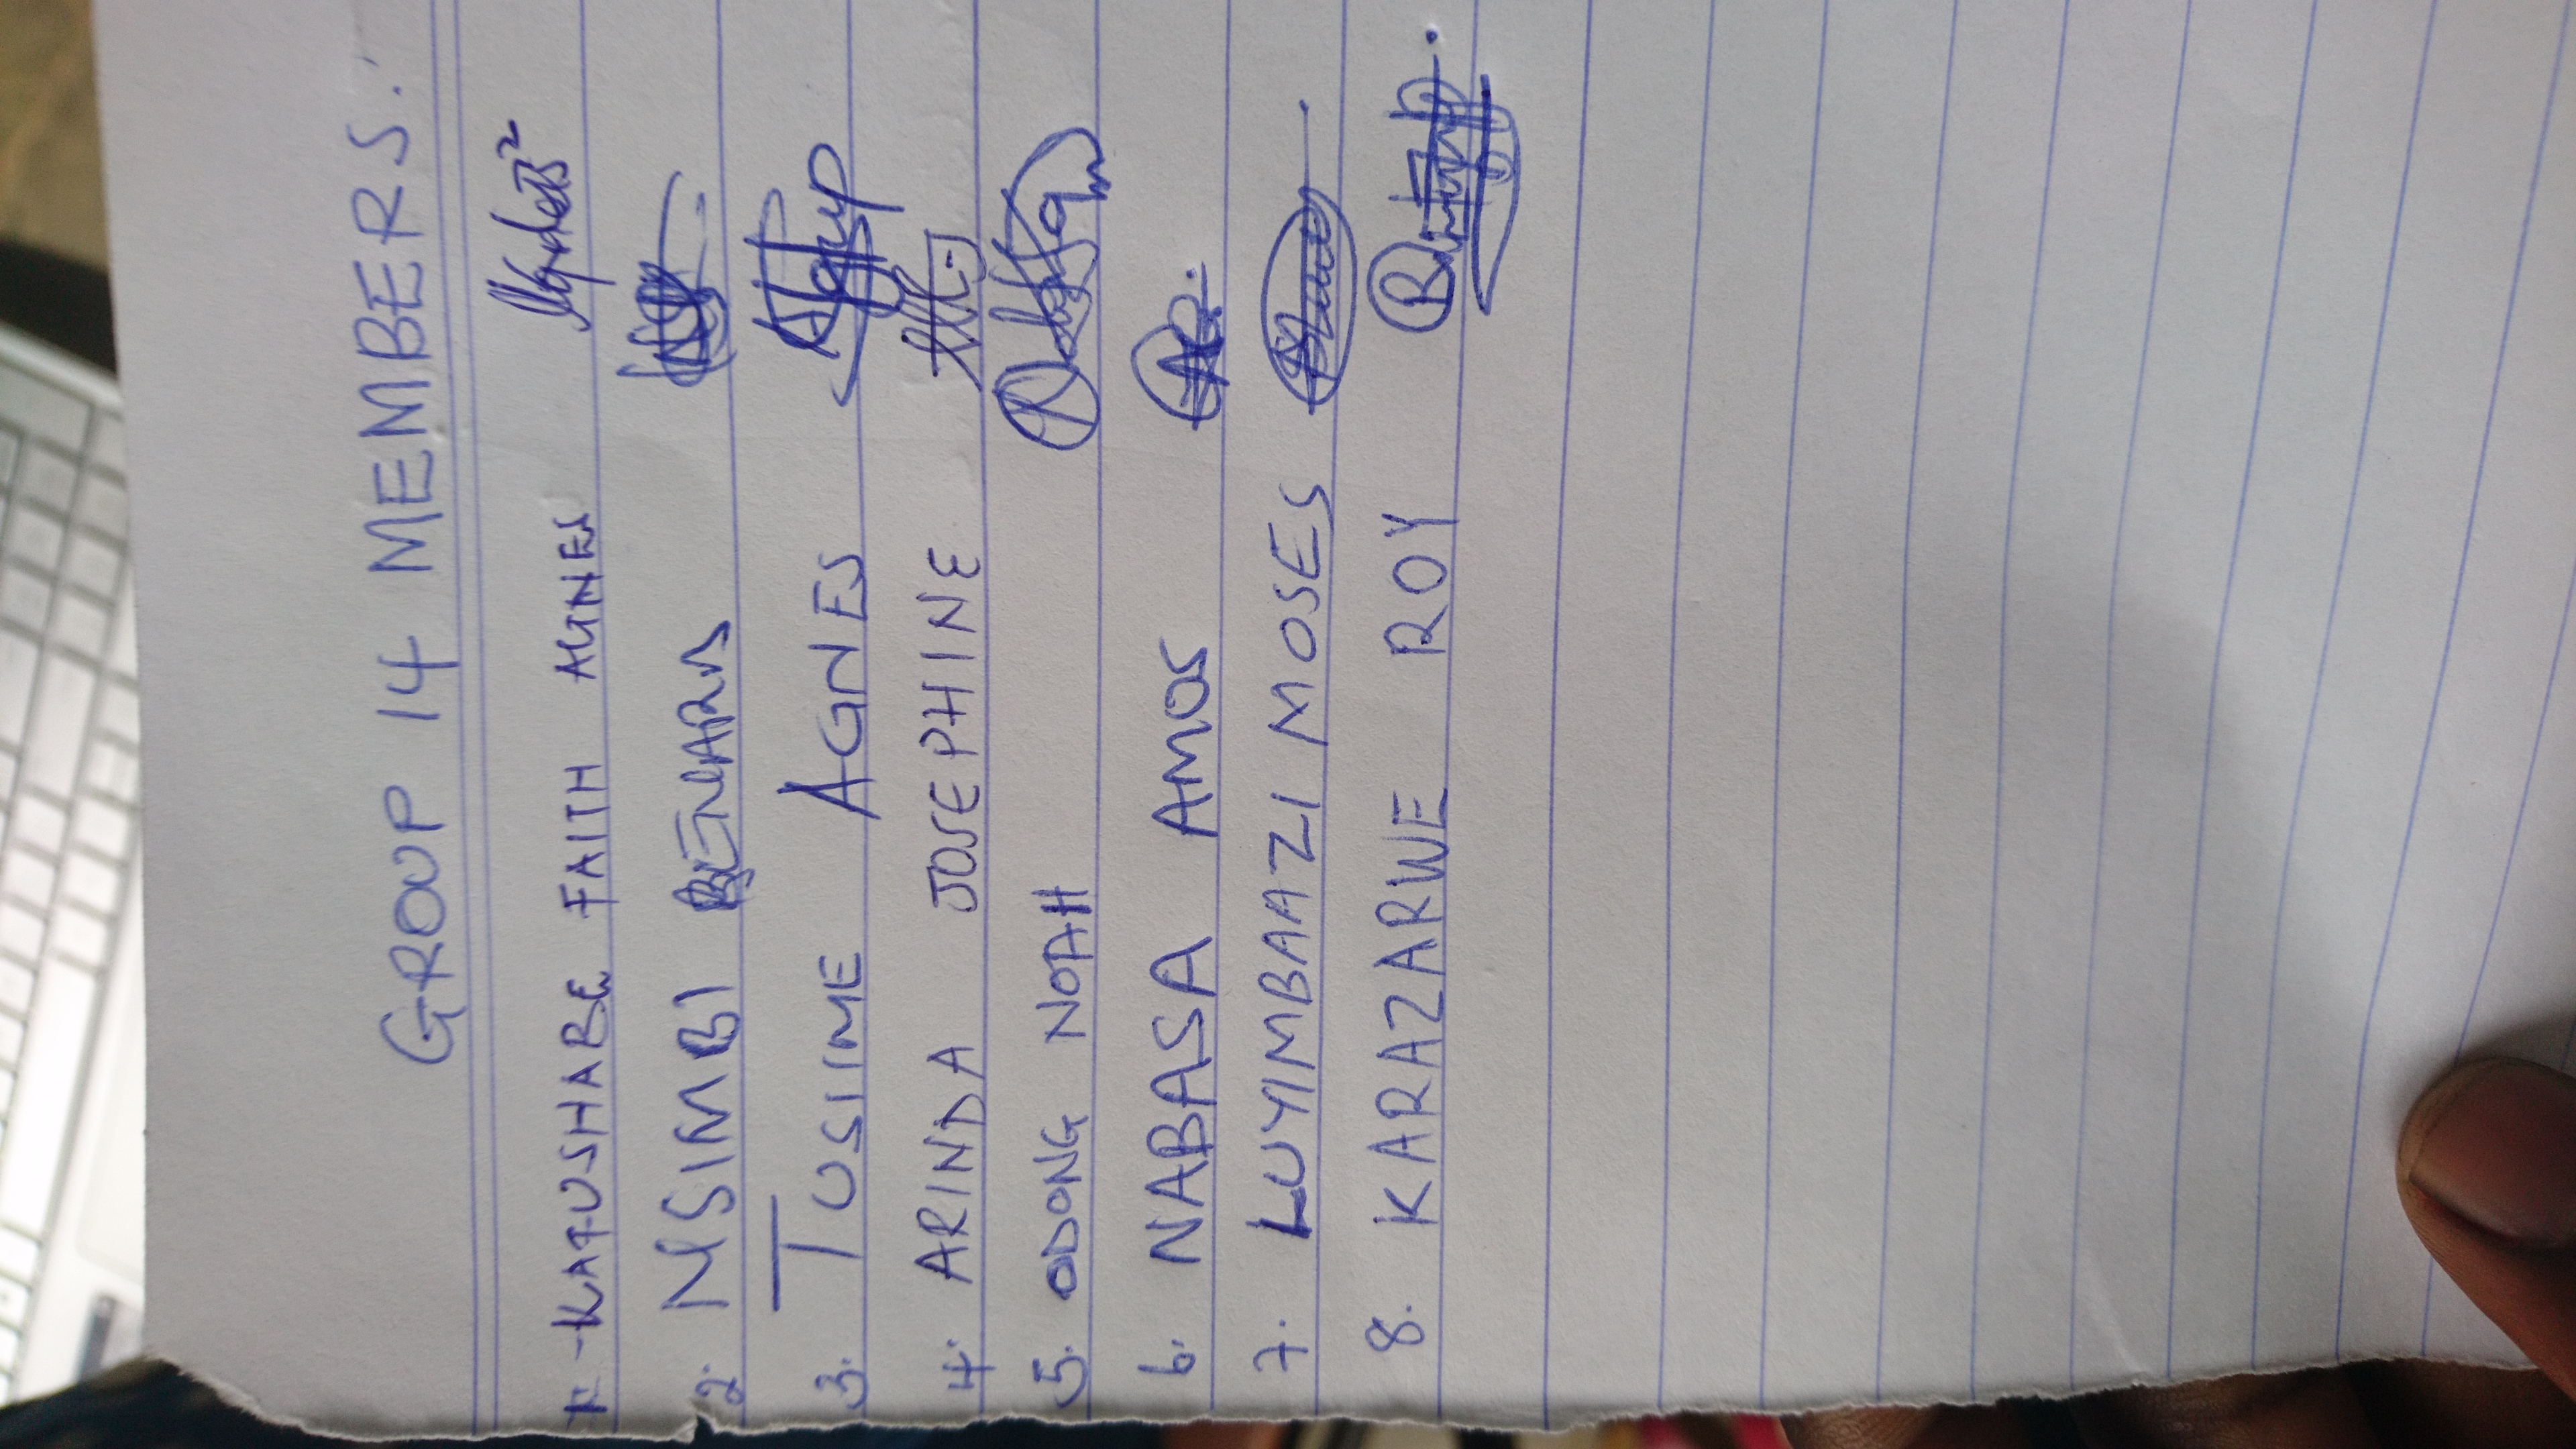 GROUP 14 MEMBERS.
1. KATUSHABE FAITH AGNES
2. NSIMBI BENARD
3. TUSIIME AGNES
4. ARINDA JOSEPHINE
5. ODONG NOAH
6. NABASA AMOS
7. LUYIMBAAZI MOSES
8. KARAZARWE ROY